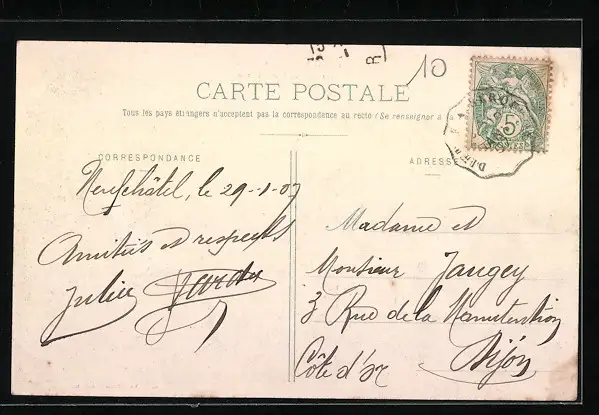 10
CARTE POSTALE
Tous les pays étrangers n'acceptent pas la correspondance au recto (Se renseigner à la
CORRESPONDANCE
ADRESSE
Neufchâtel, le 29-1-07
Amitiés et respects
Julien
Madame et
Monsieur Jaugey
3 Rue de la Manutention
Dijon
Côte d'Or
5
R